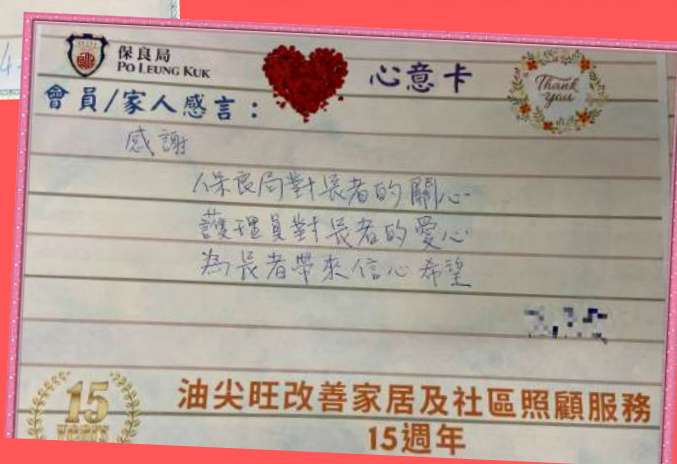 4.
保良局
PO LEUNG KUK
心意卡
Thank you
會員/家人感言：
感謝
保良局對長者的關心
護理員對長者的愛心
為長者帶來信心希望
15
YEARS
油尖旺改善家居及社區照顧服務
15週年